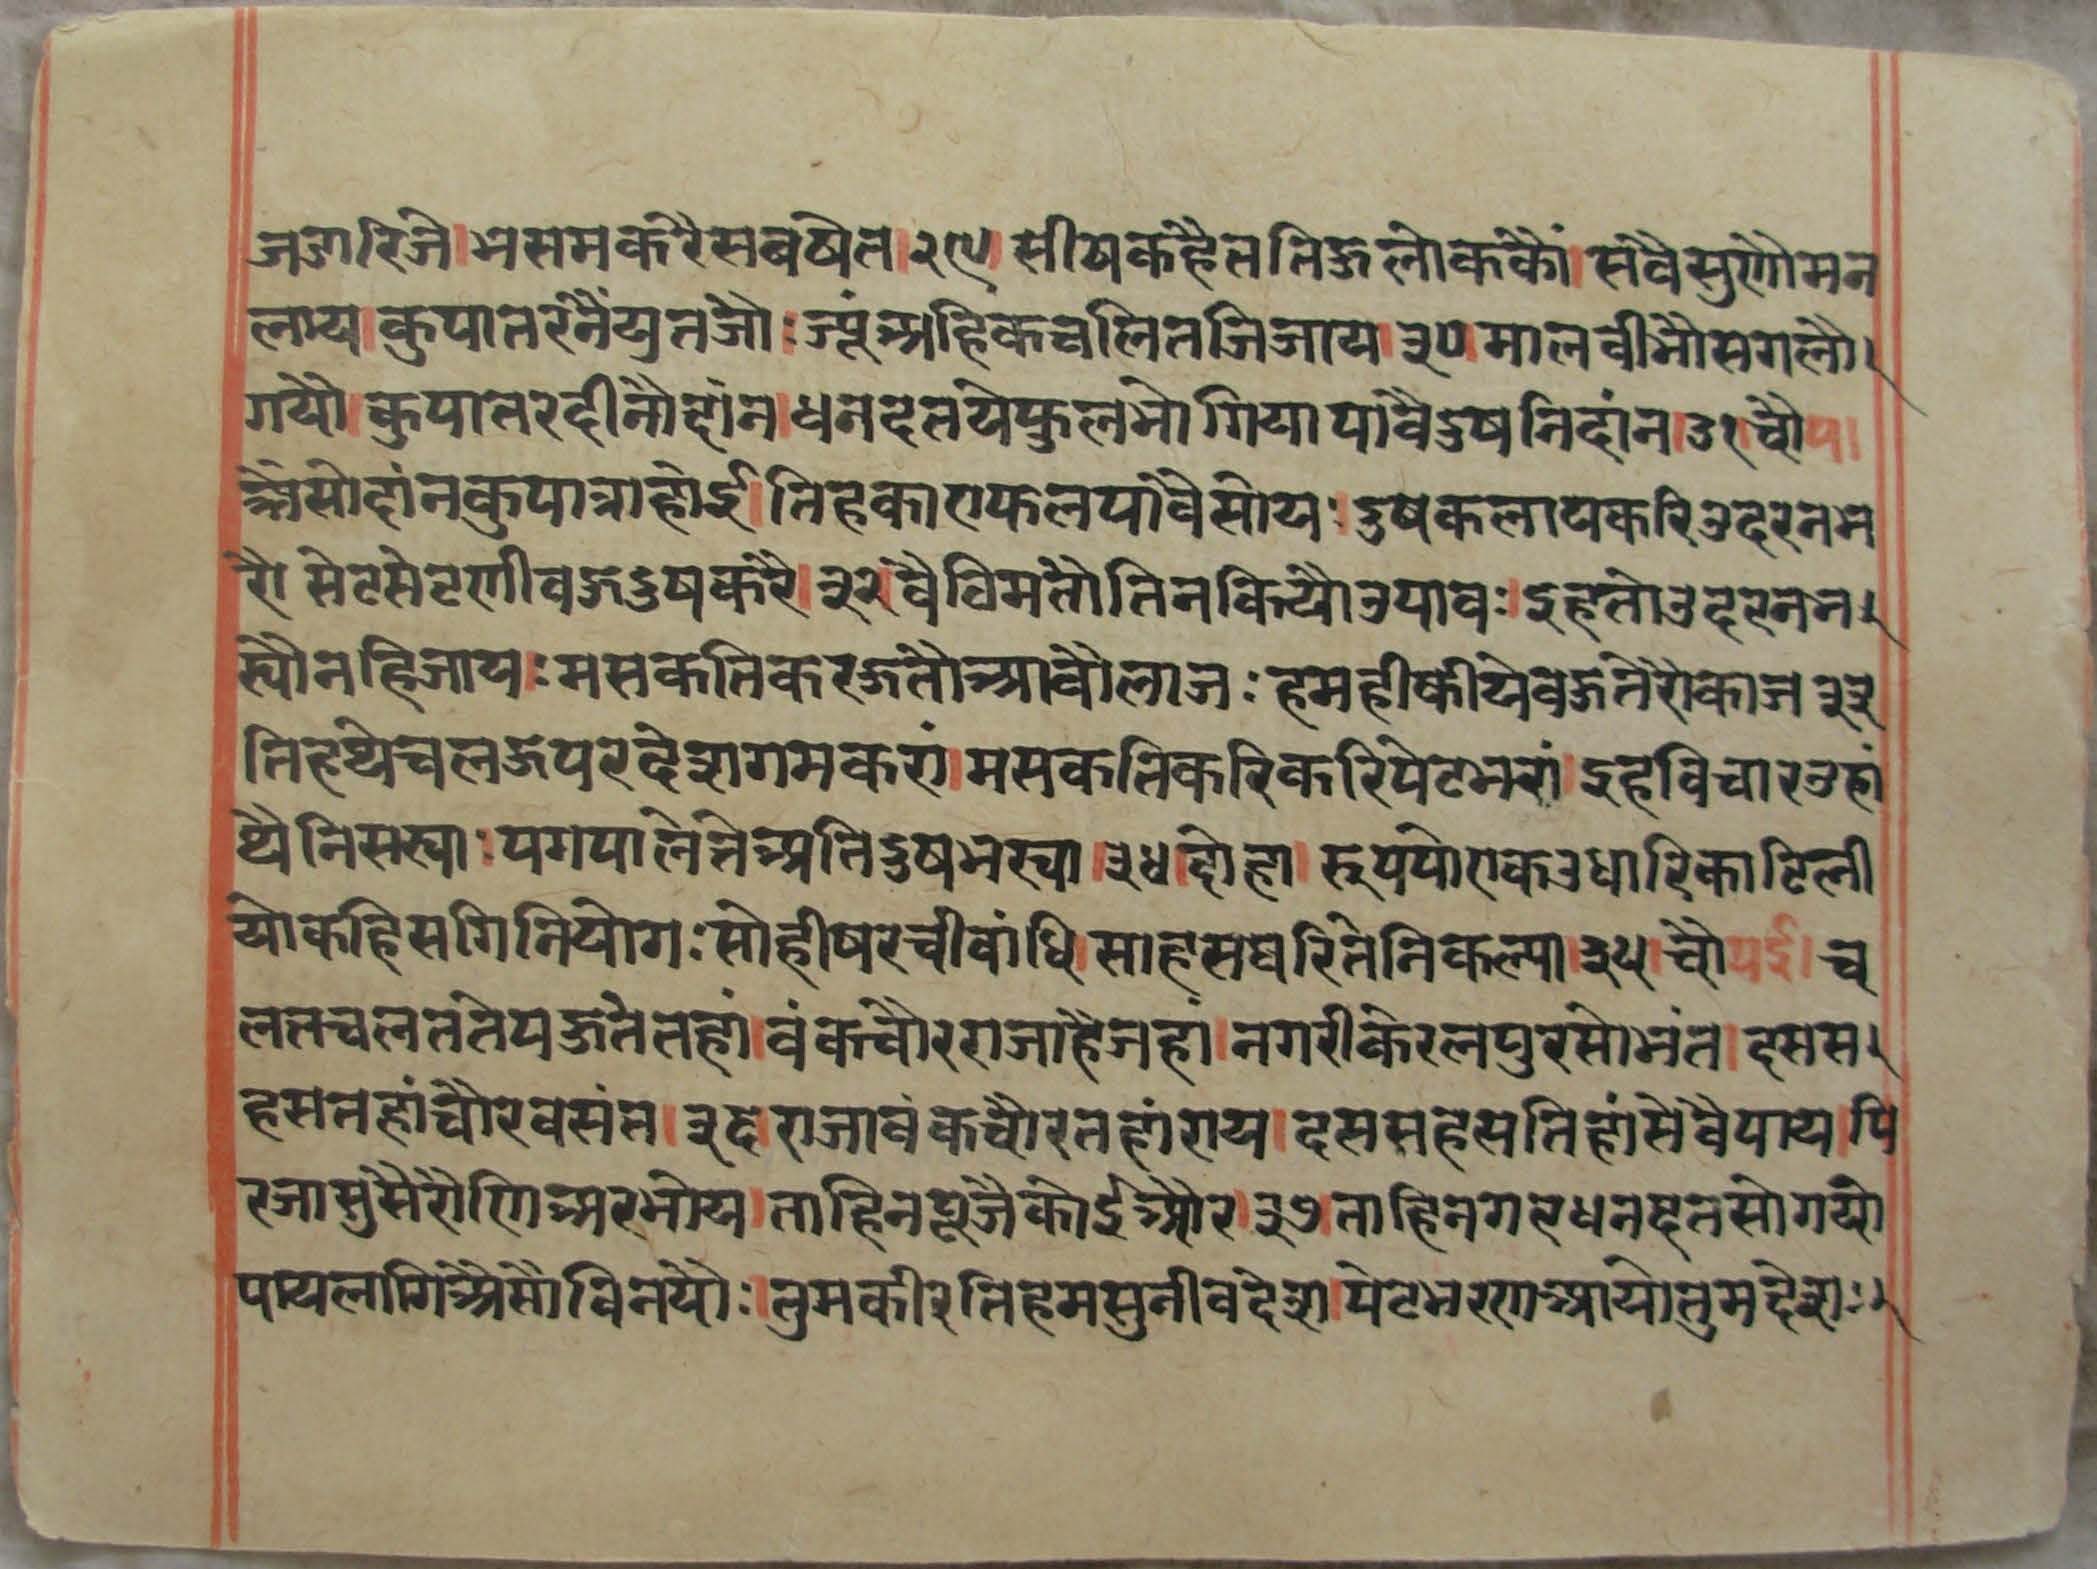 जजारिजे।भसमकरैसबषेत।२९।सीषकहैततिजलोककौं।सवैसुणौमन
लाय।कुपातरनैंयुतजौ:ज्यूंअहिकंचलितजिजाय।३०।मालवीभौसगलौ।
गयौ।कुपातरदीनौदांन।धनदतयेकुलभोगिया।पावैदुषनिदांन।३१।चौप।
अैसोदांनकुपात्राहोई।तिहकाराफलपावैसोय:।दुषकलापकरिउदरनभ
रौ।सेटसेटणीवजदुषकरै।३२।वैविमतौतिनकियौउपाव:।इहतौउदरनन।
स्यौनहिजाय:मसकतिकरजतौआवौलाज:हमहीकीयेवजतेरौकाज३३
तिहथेचलजपरदेशगमकरां।मसकतिकरिकरिपेटभरां।इहविचारउहां
थैनिसस्या:पगपालेतेअतिदुषभस्या।३४।दोहा।रूपपोराकउधारिकाटिली
योकहिसगिनियोग:सोहीषरचीबांधि।साहसघरितेनिकल्या।३५।चौपई।च
लतचलततेपजतेतहां।वंकचौरराजाहैजहां।नगरीकेरलपुरसोभंत।दसस।
हसतहांचौरवसंत।३६।राजावंकचौरतहांराय।दससहसतिहांसेवैपाय।पि
रजासुसैरौणिअरभोय।ताहिनपूजैकोईऔर।३७।ताहिनगरधनदतसोगयो
पायलागिअैसौविनयौ:।तुमकीरतिहमसुनीवदेश।पेटभरणआयोतुमदेश:।